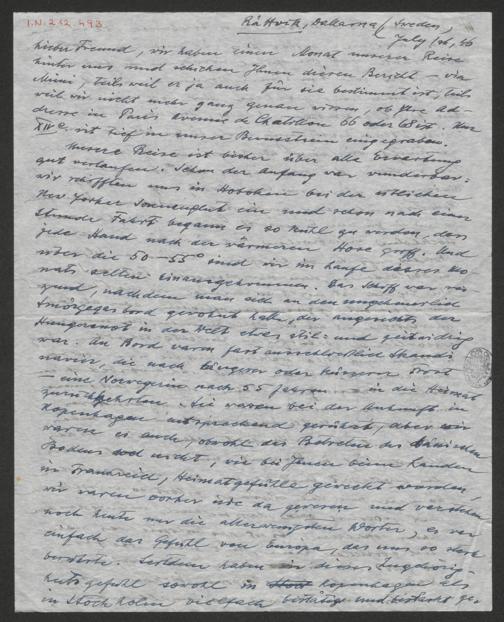 I.N. 212.493
Rättvik, Dalarna (Sweden,
July 16, 46
Lieber Freund, wir haben einen Monat unserer Reise
hinter uns und schicken Ihnen diesen Bericht – via
Mimi, teils weil er ja auch für sie bestimmt ist, teils
weil wir nicht mehr ganz genau wissen, ob Ihre Ad-
dresse in Paris avenue de Chatillon 66 oder 68 ist. Nur
XIVe ist tief in unser Bewusstsein eingegraben.
Unsere Reise ist bisher über alle Erwartung
gut verlaufen. Schon der Anfang war wunderbar:
wir schifften uns in Hoboken bei der üblichen
New Yorker Sonnenglut ein und schon nach einer
Stunde Fahrt begann es so kühl zu werden, dass
jede Hand nach der wärmeren Hose griff. Und
über die 50–55° sind wir im Laufe dieses Mo-
nats selten hinausgekommen. Das Schiff war
, nachdem man sich an den
Smörgåsbord gewöhnt hatte, der angesichts der
Hungersnot in der Welt etwas stil- und
war. An Bord waren fast ausschliesslich Skandi-
navier, die nach längerer oder kürzerer Zeit
– eine Norwegerin nach 55 Jahren – in die Heimat
zurückkehrten. Sie waren bei der Ankunft in
Kopenhagen entsprechend gerührt, aber wir
waren es auch, obwohl das Betreten des dänischen
Bodens nicht, wie bei Ihnen beim Landen
in Frankreich, Heimatgefühle geweckt
wir waren vorher nie da gewesen und verstehen
noch heute nur die allerwenigsten Wörter, es war
einfach das Gefühl von Europa, das uns so stark
berührte. Seitdem haben wir dieses Zugehörig-
keitsgefühl sowohl in Kopenhagen als
in Stockholm vielfach bestätigt und bestärkt ge-